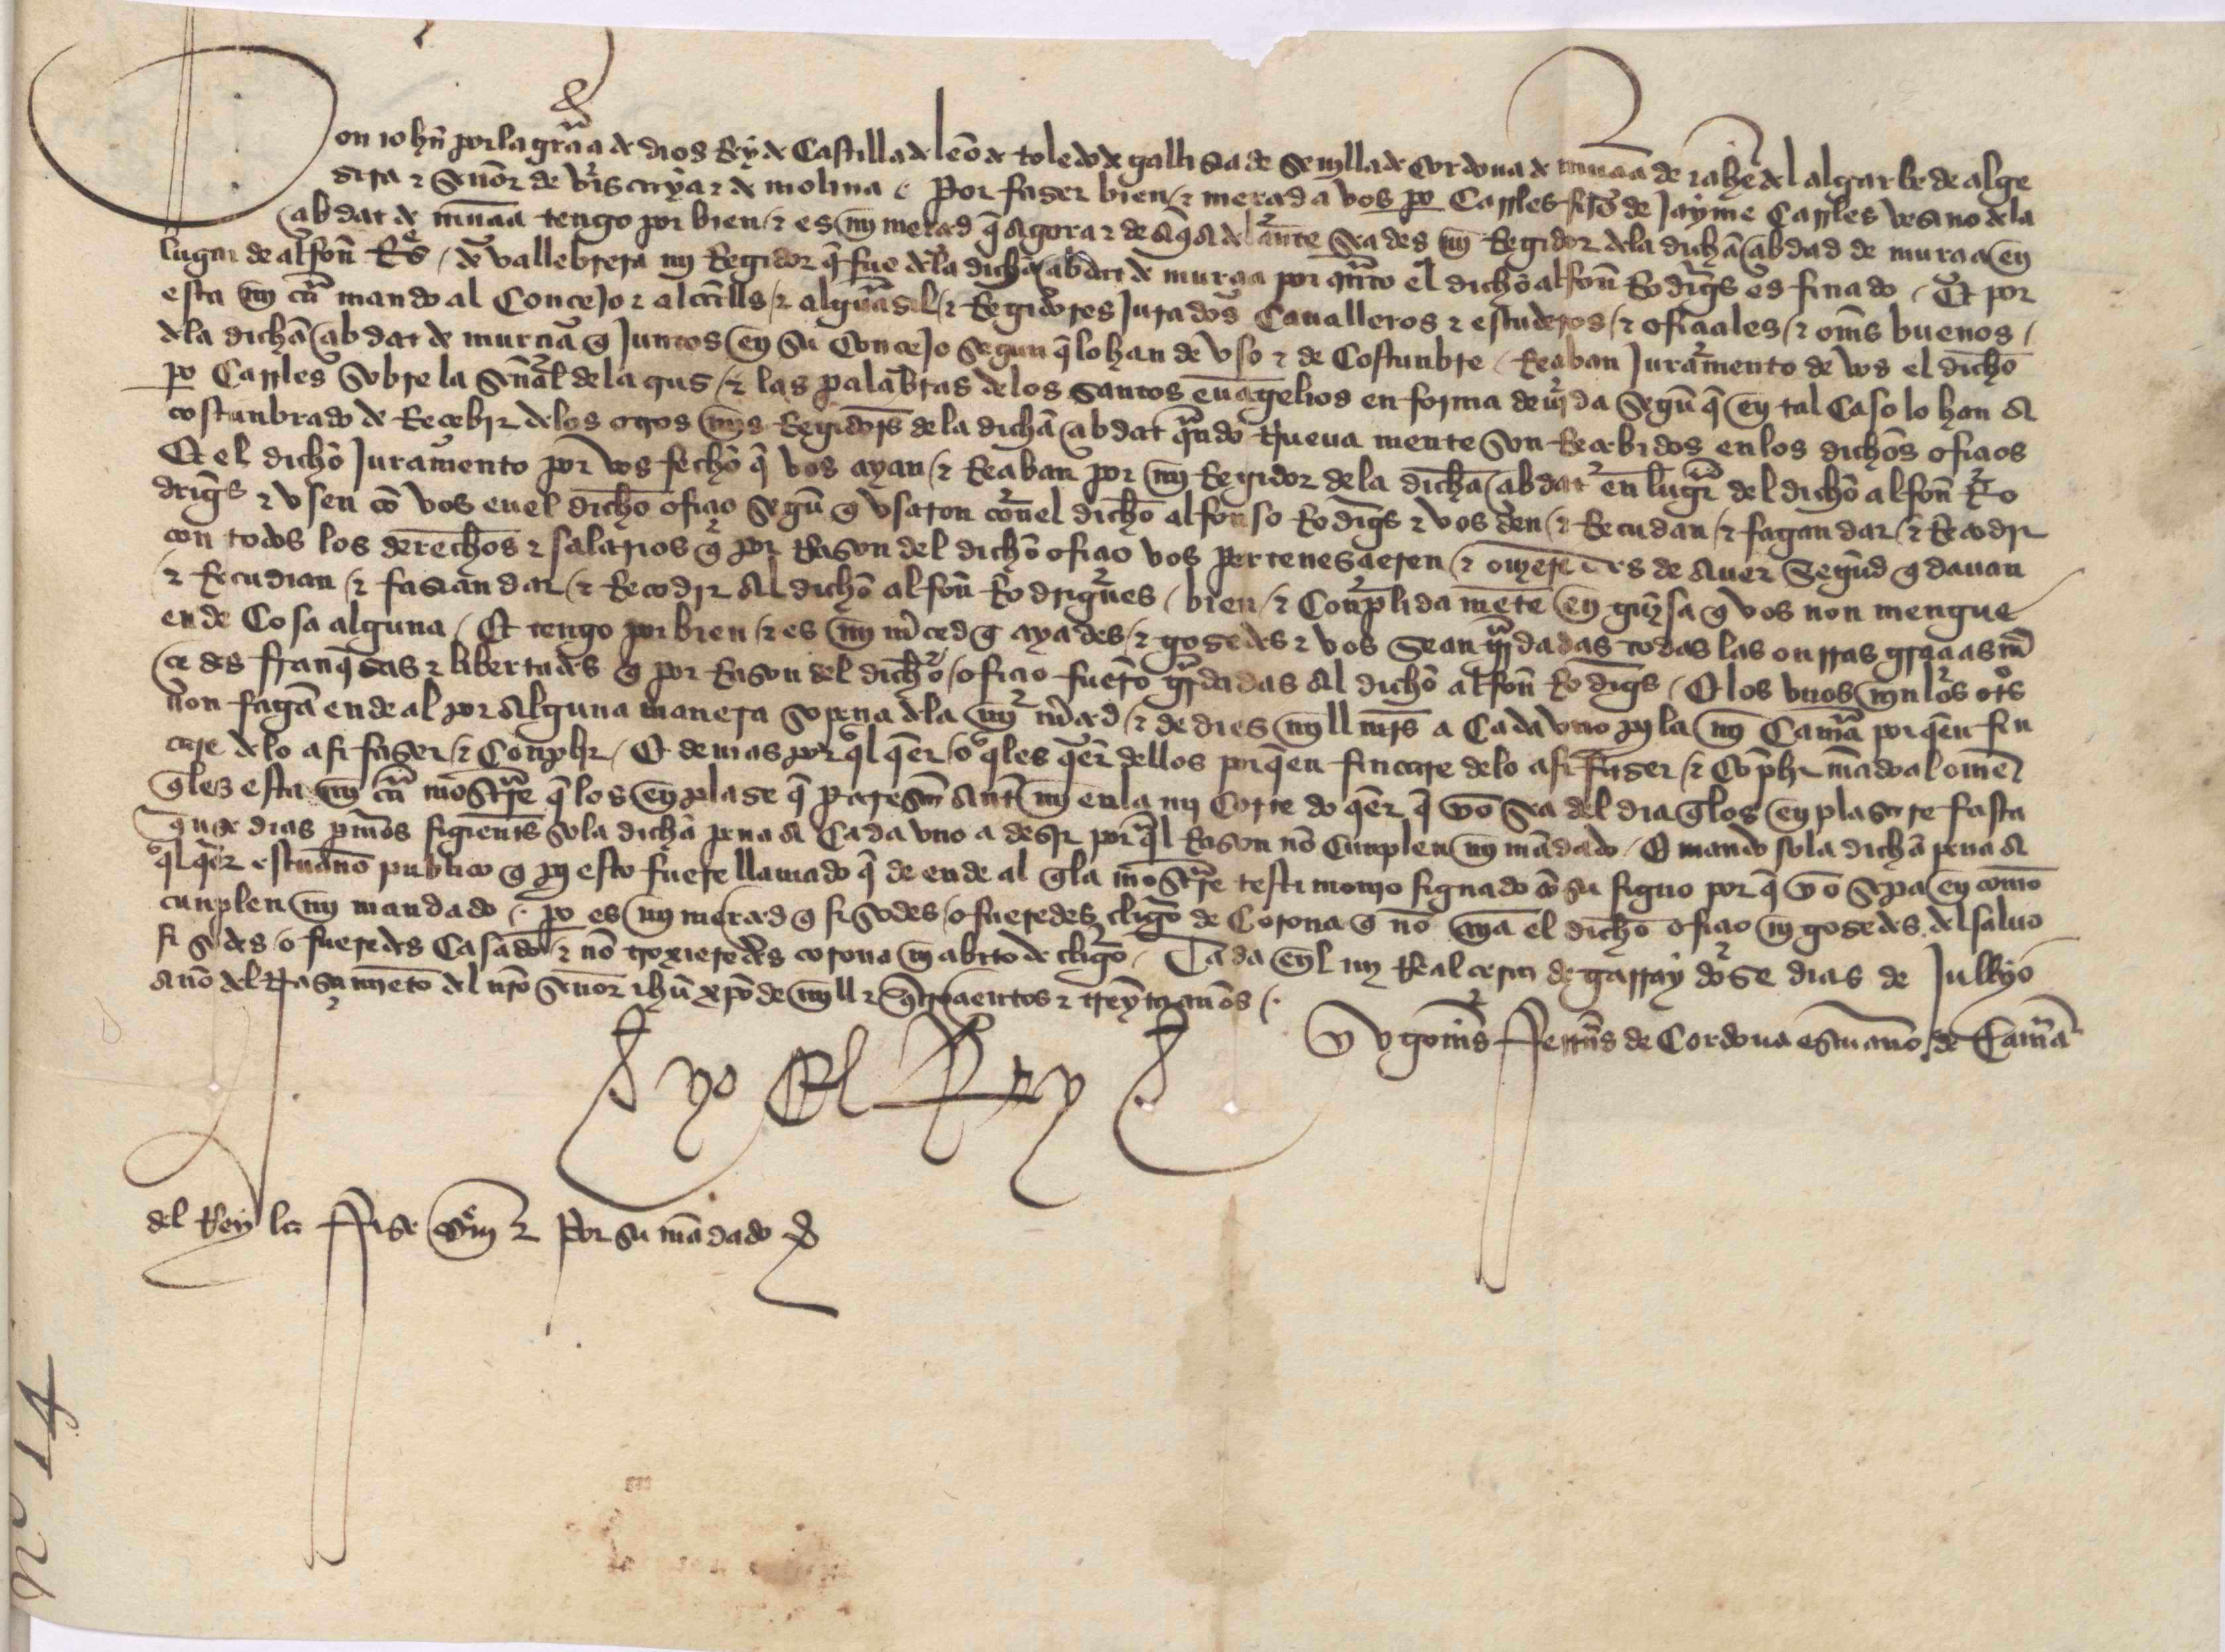 Don iohn por la graçia de dios Rey de Castilla de leon de toledo de gallisia de Seuilla de Cordoua de murçia de iahen del algarbe de alge
sira e Señor de viscaya e de molina Por faser bien e merçed a vos po Carles fijo de Jayme Carles vesino de la
çibdat de murçia tengo por bien e es mi merçed q̃ Agora e de Aqui Adelante Seades mi Regidor dela dicha çibdad de murçia en
lugar de alfon̄ Rs de vallebrera mi Regidor q̃ fue dela dicha çibdat de murçia por quanto el dicho alfon̄ Rodrigs es finado Et por
esta mi cãr mando al Conçejo e alcalls e alguasil e Regidores Jurados Caualleros e escuderos e ofiçiales e om̄s buenos
dela dicha çibdat de murçia q̃ Juntos en su Conçejo segun q̃ lo han de vso e de Costunbre Reçiban Juramento de vos el dicho
po Carles Sobre la Señal dela crus e las palabras delos santos euãgelios en forma deuida Segũ q̃ en tal Caso lo han A
costunbrado de Reçebir delos otros mis Regidors dela dicha çibdat qñdo Nueua mente Son Reçebidos en los dichos ofiçios
Et el dicho Juramento por vos fecho q̃ vos ayan e Reçiban por mi Regidor de la dicha çibdat en lugar del dicho alfon̄ Ro
drigs e vsen cõ vos en el dicho ofiçio Segũ q̃ vsaron con el dicho alfonso Rodrigs e vos den e Recudan e fagan dar e Recodir
con todos los derechos e salarios q̃ por Rason del dicho ofiçio vos pertenesçieren e ouieredes de Auer Segund q̃ dauan
e Recudian e fasian dar e Recodir Al dicho alfon̄ Rodrigues bien e Conplida mente en guisa q̃ vos non mengue
ende Cosa alguna Et tengo por bien e es mi mrçed q̃ ayades e gosedes e vos Sean grdadas todas las onrras graçias mr
çedes franq̃sas e libertades q̃ por Rason del dicho ofiçio fuerõ grdadas Al dicho alfon̄ Rodrigs Et los vnos nin los otrs
non fagã ende al por Alguna manera So pena dela mi mrçed e de dies mill mrs a Cada vno pa la mi Camãr por q̃en fin
care delo asi faser e Conplir Et demas por q̃l q̃er o q̃les q̃er dellos por q̃en fincare delo asi faser e Cõplir mãdo al ome
q̃les esta mi cãr mostrare q̃ los enplase q̃ parescã Ante mi enla mi Corte do q̃er q̃ yo Sea del dia q̃los enplasare fasta
quinse dias pmos̃ siguientes Sola dicha pena A Cada vno a desir por q̃l Rason nõ Cunplen mi mãdado Et mando Sola dicha pena A
q̃l q̃er escriuano publico q̃ pa esto fuere llamado q̃ de ende al q̃la mostrare testimonio signado cõ su signo por q̃ yo Sepa en como
cunplen mi mandado po es mi merçed q̃ si Sodes o fueredes cligo de Corona q̃ nõ ayades el dicho ofiçio ni gosedes del saluo
si Sodes o fueredes Casado e nõ troxieredes corona ni abito de cligo Dada enel mi Real çerca de garray dose dias de Jullio
Año del Nasçimieto del nrõ Señor ihũ xpõ de mill e quatroçientos e treynta años
Yo gomes ferrãs de Cordoua escriuano de Camãr
yo El Rey
del Rey la fise escriuir Por su mãdado
nº 14